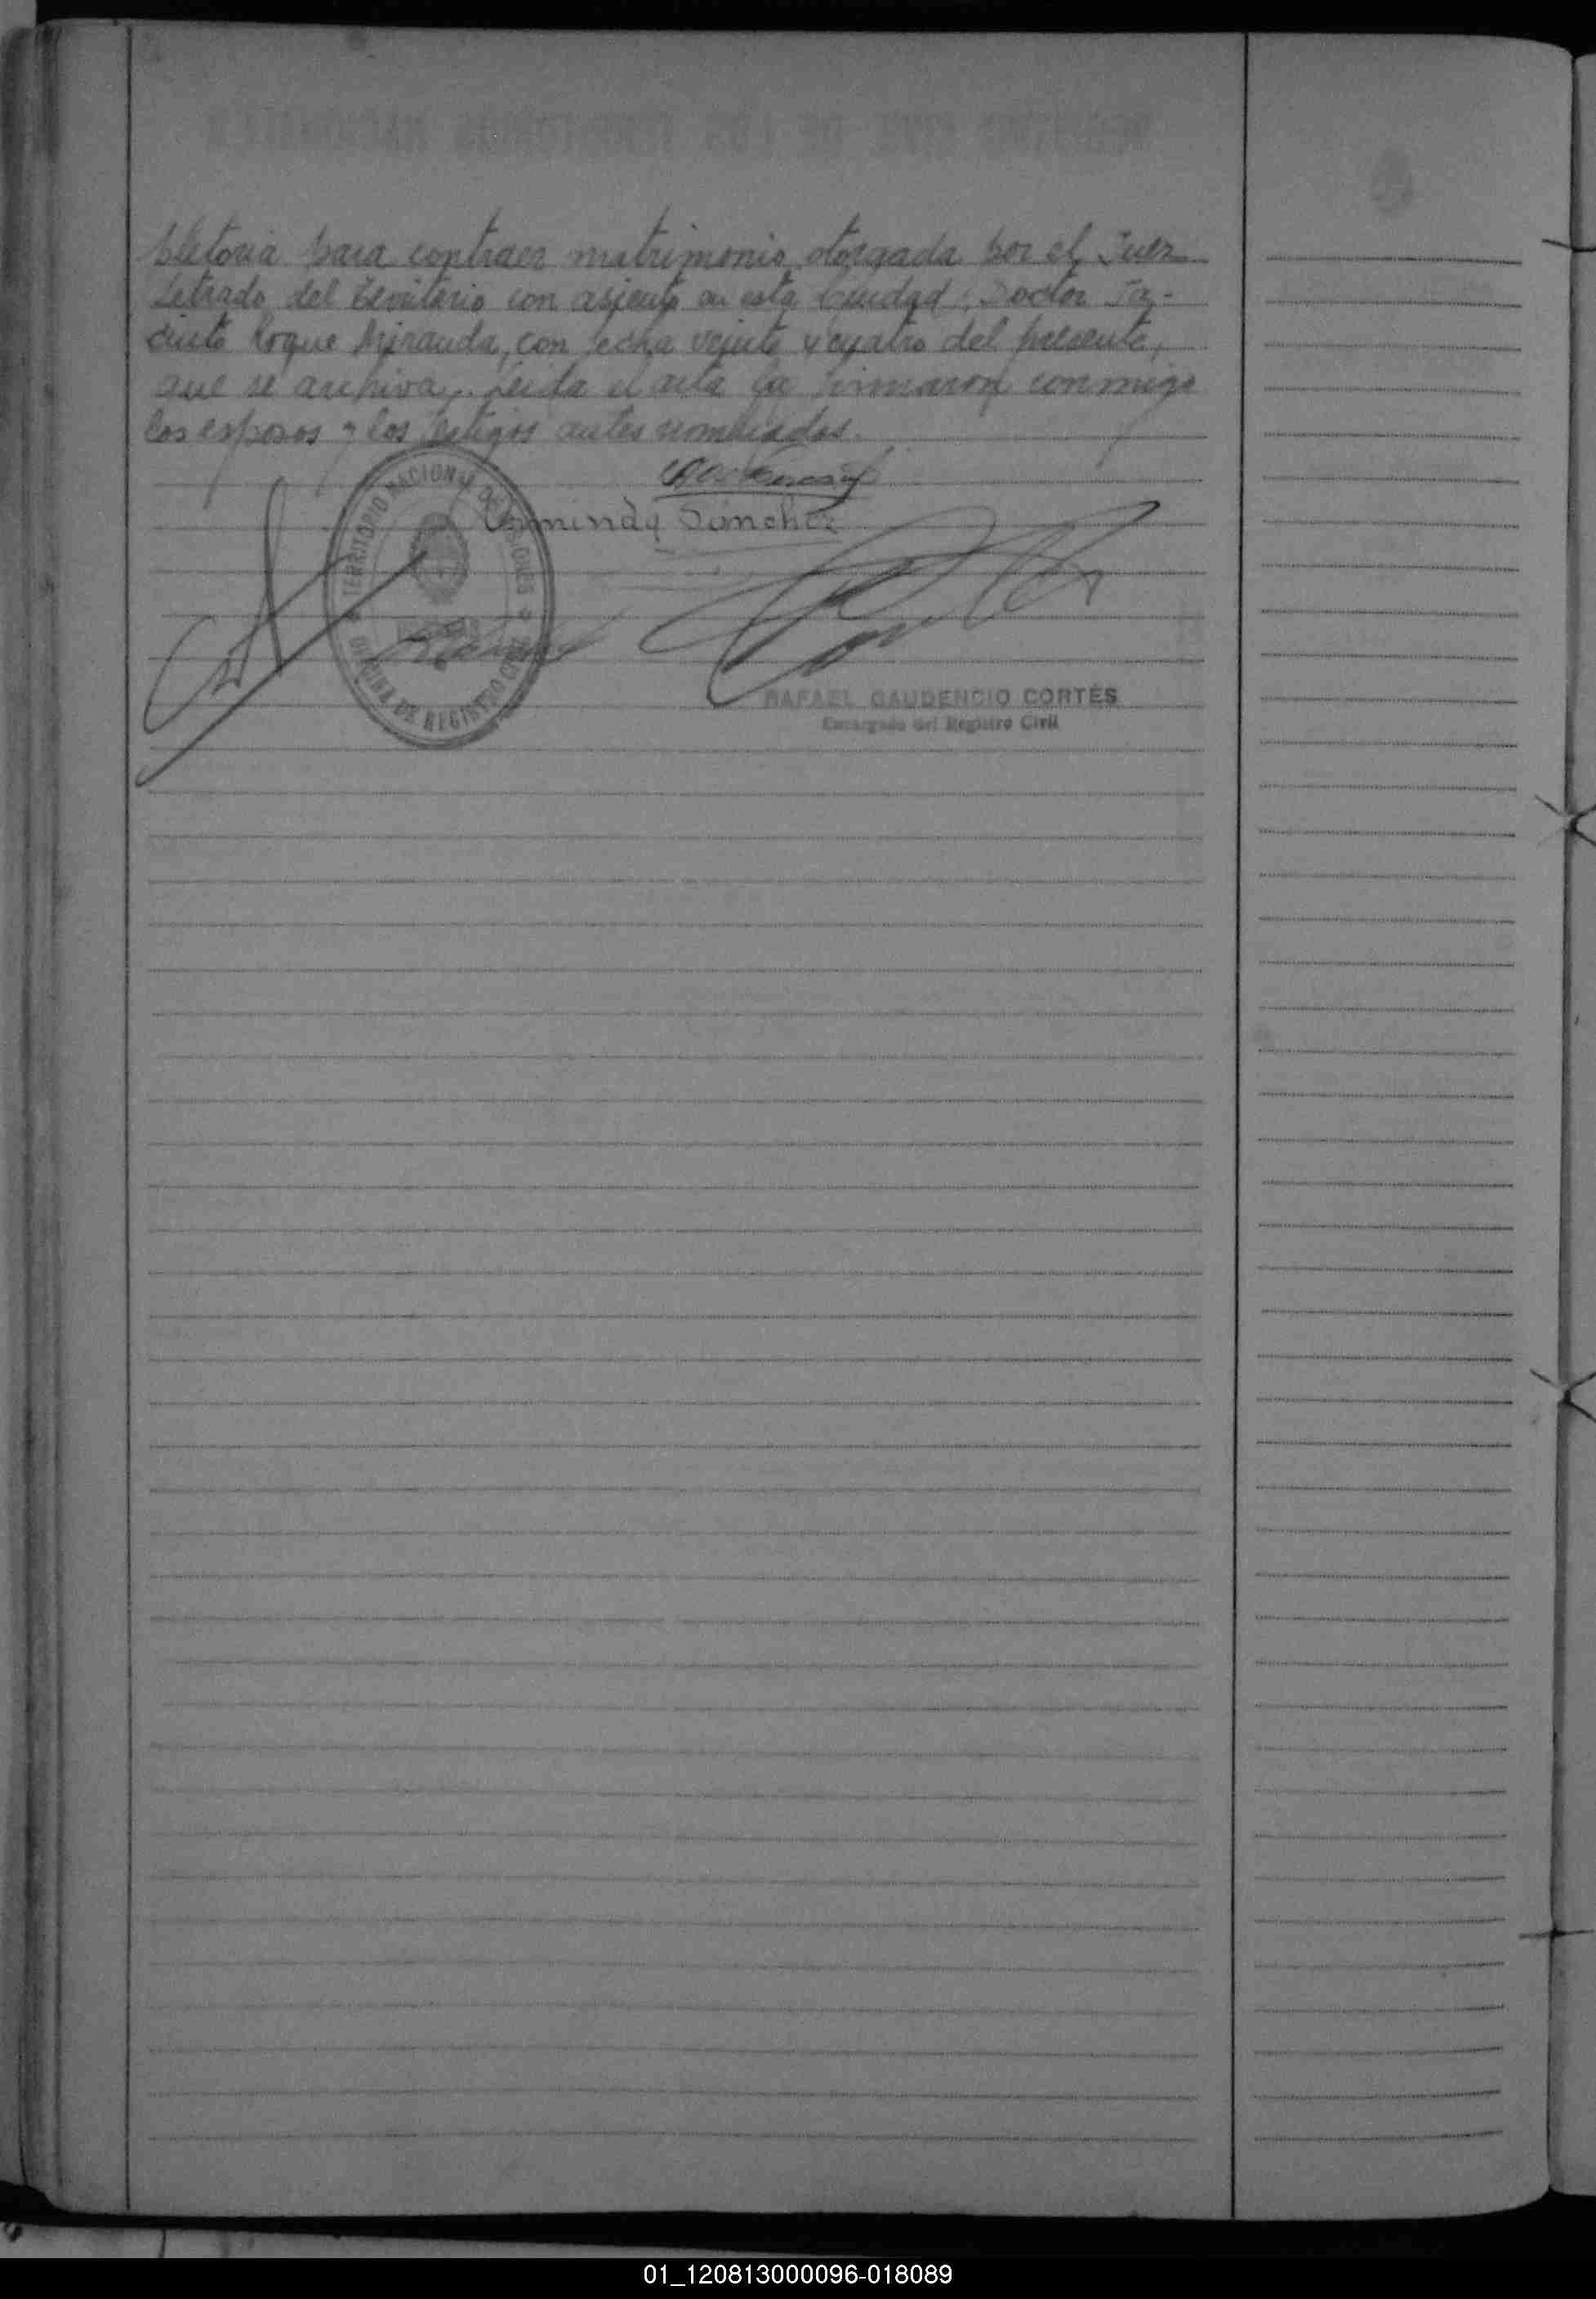 pletoria para contraer matrimonio, otorgada por el Juez
Letrado del Territorio con asiento en esta Ciudad, Doctor Ja-
cinto Roque Miranda, con fecha veinte y cuatro del presente,
que se archiva. Leida el acta la firmaron conmigo
los esposos y los testigos antes nombrados.
Erminda Sanchez
TERRITORIO NACIONAL DE MISIONES
OFICINA DE REGISTRO CIVIL
RAFAEL GAUDENCIO CORTÉS
Encargado del Registro Civil
01_120813000096-018089